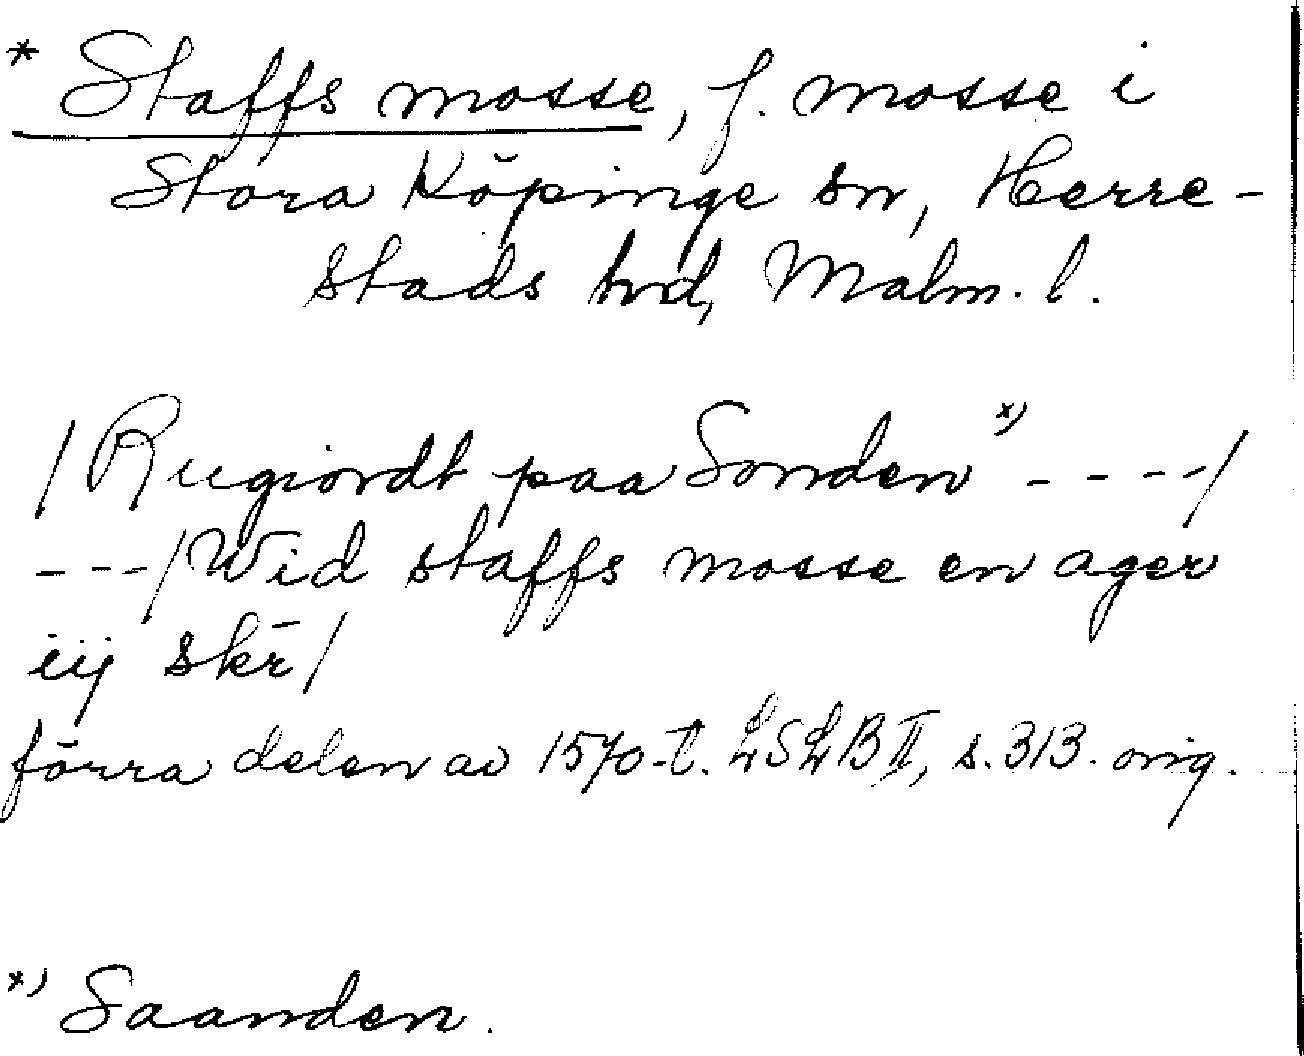 * Staffs mosse, f. mosse i
Stora Köpinge sn, Herre-
stads hd, Malm. l.
/Rugiordt paa Sonden *) - - -/
- - -/Wid staffs mosse en ager
iij skr̄/
förra delen av 1570-t. LSLB II, s. 313. orig.
*) Saanden.